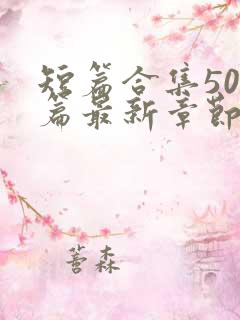 短篇合集50
篇最新章节
蓍森